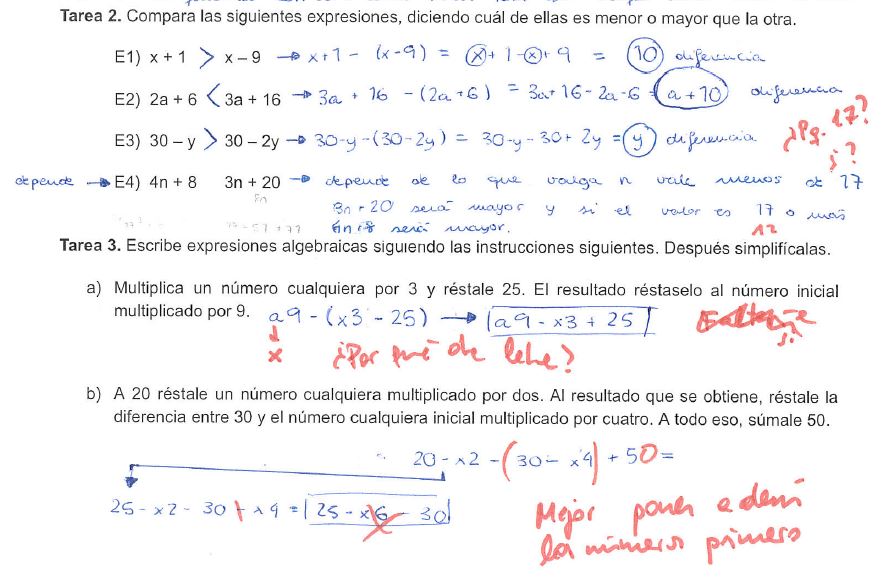 Tarea 2. Compara las siguientes expresiones, diciendo cuál de ellas es menor o mayor que la otra.
E1) x + 1 > x – 9 → x+1 - (x-9) = x + 1 - x + 9 = 10 diferencia
E2) 2a + 6 < 3a + 16 → 3a + 16 - (2a+6) = 3a+16-2a-6 = a+10 diferencia
E3) 30 – y > 30 – 2y → 30-y-(30-2y) = 30-y-30+2y = y diferencia
¿Pq. 17?
¿?
depende → E4) 4n + 8 3n + 20 → depende de lo que valga n vale menos de 17
3n + 20 será mayor y si el valor es 17 o más
12
será mayor.
Tarea 3. Escribe expresiones algebraicas siguiendo las instrucciones siguientes. Después simplifícalas.
a) Multiplica un número cualquiera por 3 y réstale 25. El resultado réstaselo al número inicial
multiplicado por 9. a9 - (x3 - 25) → a9 - x3 + 25
x ¿Por qué de letre?
b) A 20 réstale un número cualquiera multiplicado por dos. Al resultado que se obtiene, réstale la
diferencia entre 30 y el número cualquiera inicial multiplicado por cuatro. A todo eso, súmale 50.
20 - x2 - (30 - x4) + 50 =
25 - x2 - 30 + x4 = 25 - x6 - 30
Mejor poner
los números primero